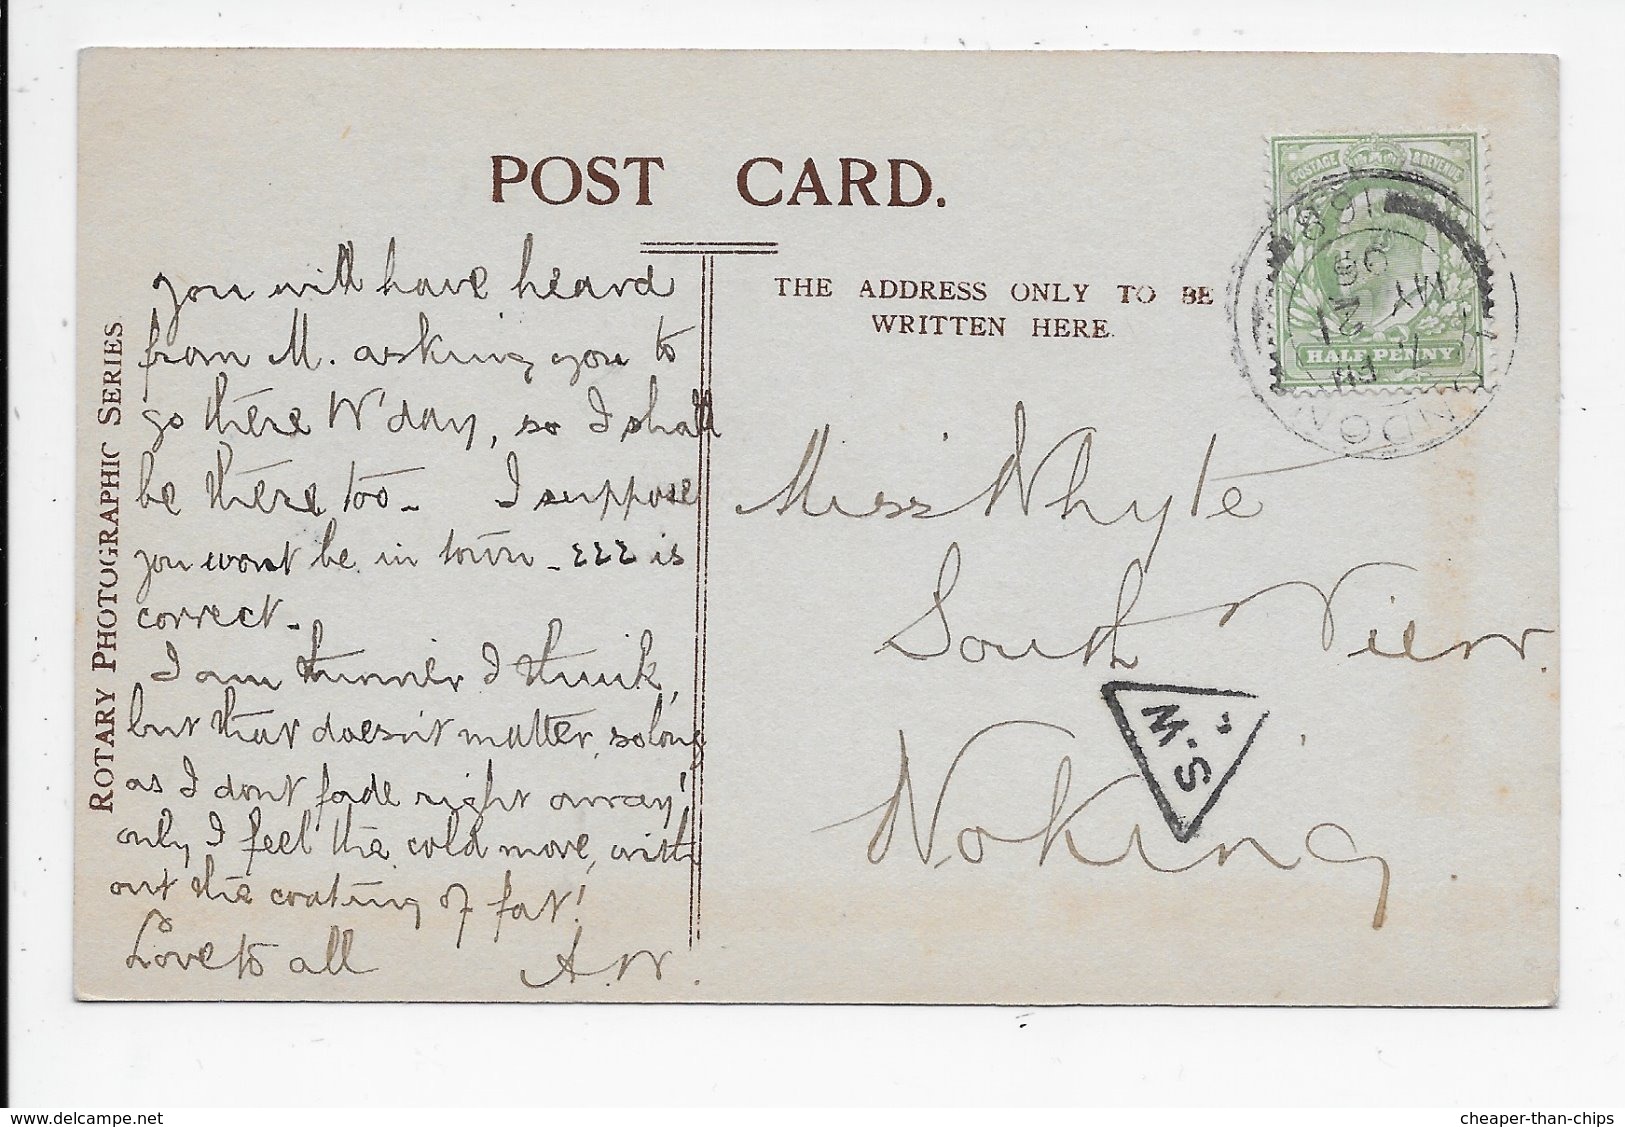 POST CARD.
THE ADDRESS ONLY TO BE
WRITTEN HERE.
ROTARY PHOTOGRAPHIC SERIES
you will have heard
from M. asking you to
go there W'day, so I shall
be there too - I suppose
you wont be in town - εεε is
correct -
I am thinner I think,
but that doesn't matter, so long
as I dont fade right away!
only I feel the cold more, with
out the coating of fat!
Love to all A.W.
Miss Whyte
South View.
Woking.
POSTAGE & REVENUE
HALF PENNY
MY
M.S
http://www.delcampe.net
cheaper-than-chips